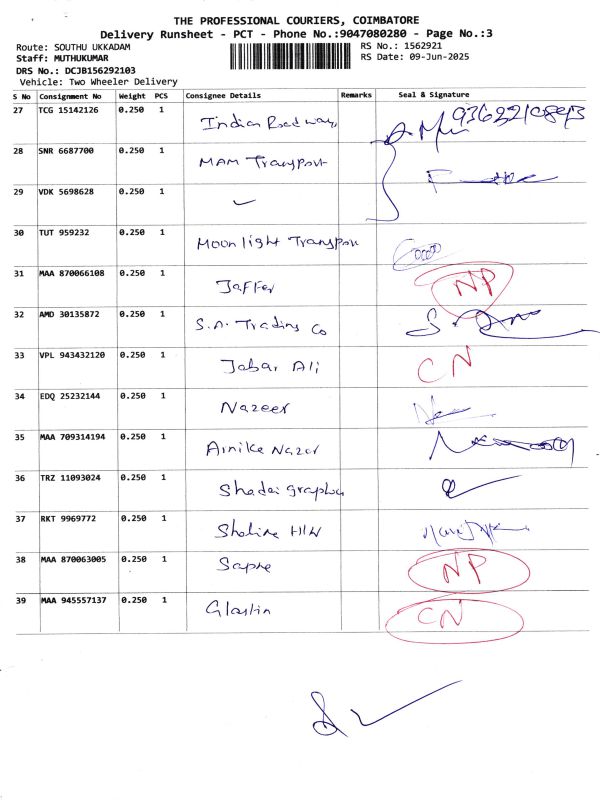 THE PROFESSIONAL COURIERS, COIMBATORE
Delivery Runsheet - PCT - Phone No.:9047080280 - Page No.:3
Route: SOUTHU UKKADAM RS No.: 1562921
Staff: MUTHUKUMAR RS Date: 09-Jun-2025
DRS No.: DCJB156292103
Vehicle: Two Wheeler Delivery
S No Consignment No Weight PCS Consignee Details Remarks Seal & Signature
27 TCG 15142126 0.250 1 Indian Roadways
28 SNR 6687700 0.250 1 MAM Transport
29 VDK 5698628 0.250 1
30 TUT 959232 0.250 1 Moonlight Transport
31 MAA 870066108 0.250 1 Jaffer NP
32 AMD 30135872 0.250 1 S.A. Trading Co
33 VPL 943432120 0.250 1 Jabar Ali CN
34 EDQ 25232144 0.250 1 Nazeer
35 MAA 709314194 0.250 1
36 TRZ 11093024 0.250 1
37 RKT 9969772 0.250 1
38 MAA 870063005 0.250 1 NP
39 MAA 945557137 0.250 1 CN